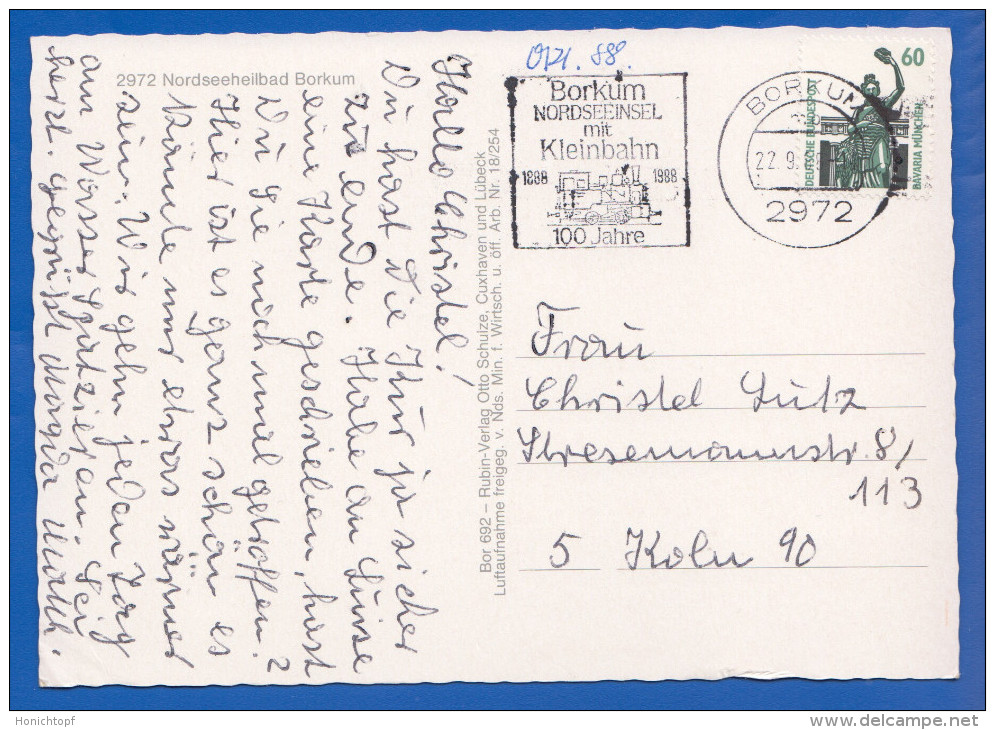 2972 Nordseeheilbad Borkum
Hallo Christel!
Du hast die Kur ja sicher
zu ende. Habe an Luise
eine Karte geschrieben, hast
Du sie nich mal getroffen?
Hier ist es ganz schön es
könnte nur etwas wärmer
sein. Wir gehn jeden Tag
am Wasser Spatzieren. Sei
herzl. gegrüßt
Bor 692 – Rubin-Verlag Otto Schulze, Cuxhaven und Lübeck
Luftaufnahme freigeg. v. Nds. Min. f. Wirtsch. u. öff. Arb. Nr. 18/254
88.
Borkum
NORDSEEINSEL
mit
Kleinbahn
1888 1988
100 Jahre
BORKUM
22.9.
2972
60
DEUTSCHE BUNDESPOST
BAVARIA MÜNCHEN
Frau
Christel Lutz
Stresemannstr. 8/
113
5 Köln 90
Honichtopf
www.delcampe.net